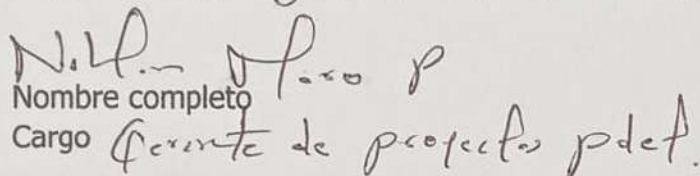 P
Nombre completo
Cargo Gerente de proyectos pdet.